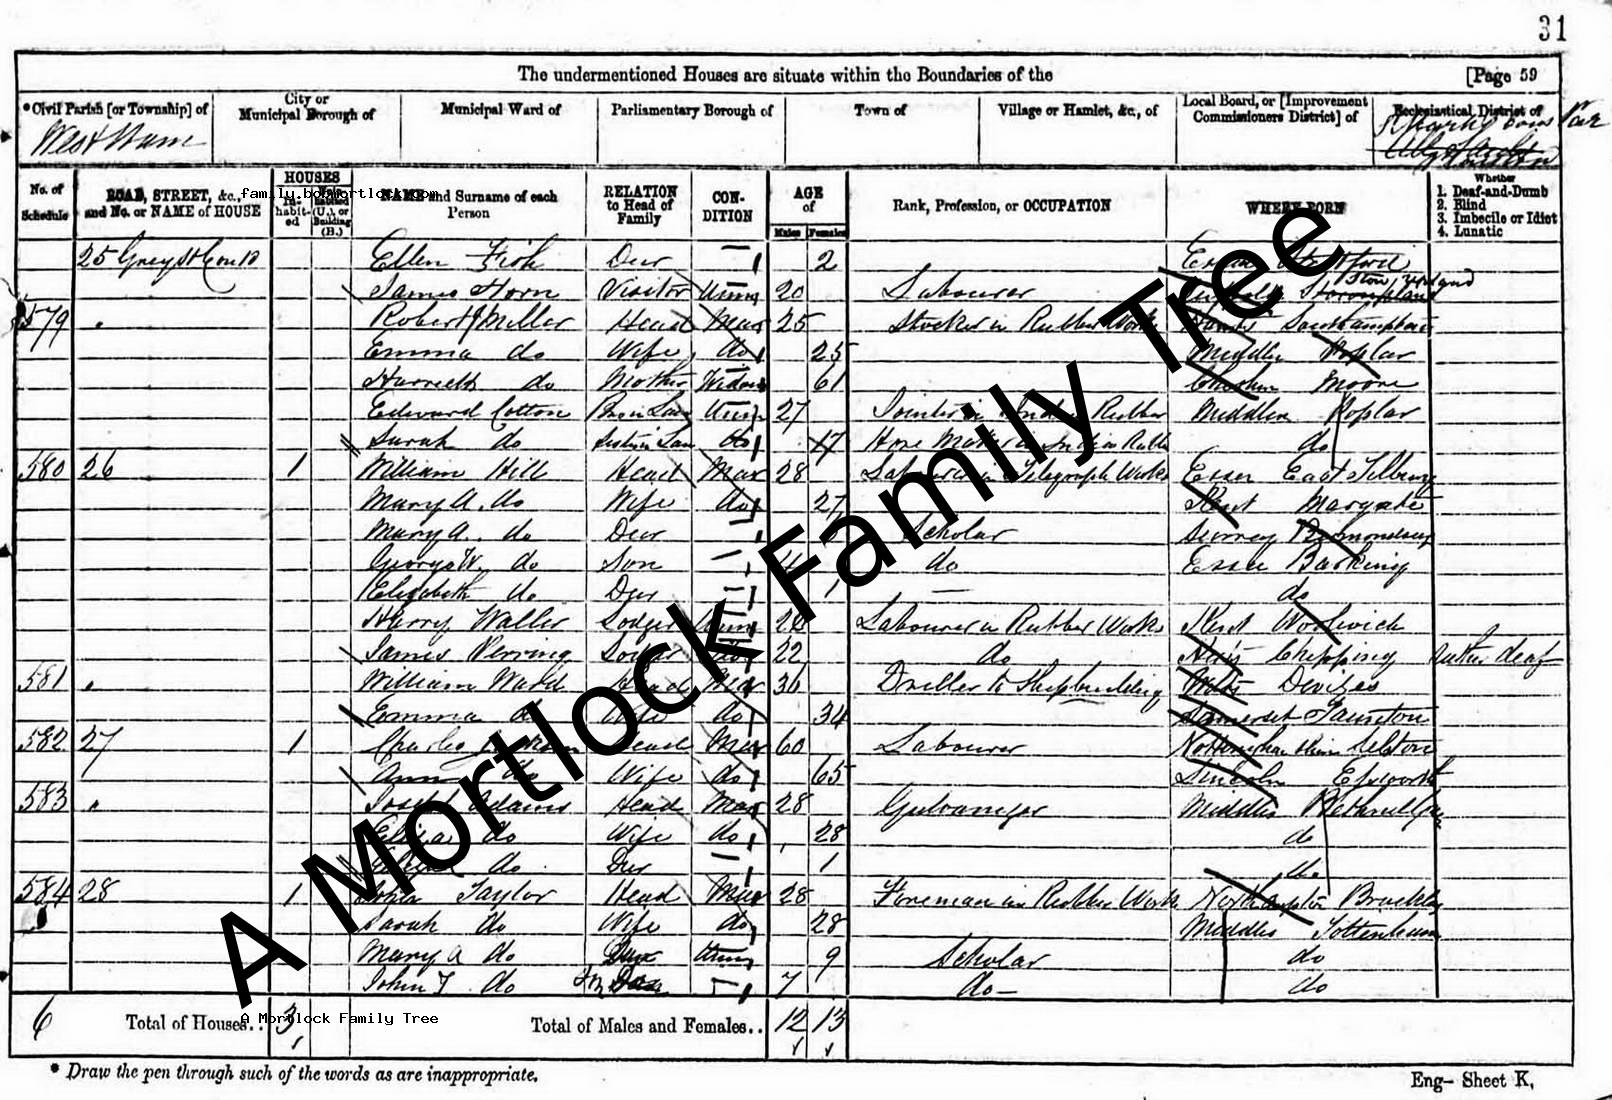 31
The undermentioned Houses are situate within the Boundaries of the [Page 59
*Civil Parish [or Township] of City or Municipal Borough of Municipal Ward of Parliamentary Borough of Town of Village or Hamlet, &c., of Local Board, or [Improvement Commissioners District] of Ecclesiastical District of
West Ham
No. of Schedule ROAD, STREET, &c., and No. or NAME of HOUSE HOUSES Inhabited (U.), or Building (B.) NAME and Surname of each Person RELATION to Head of Family CONDITION AGE of Males Females Rank, Profession, or OCCUPATION WHERE BORN Whether 1. Deaf-and-Dumb 2. Blind 3. Imbecile or Idiot 4. Lunatic
family.bobmortlock.com
25 Ellen Fish Daur 2 Essex Stratford
James Horn Visitor Unm 20 Labourer
579 Robert J Miller Head Mar 25 Stoker in Rubber Work Hants Southampton
Emma do Wife do 25 Middlex Poplar
Harriett do Mother Widow 61 Moore
Edward Cotton Bro in Law Unm 27 Rubber Middlex Poplar
Sarah do Sister in Law do 17 do
580 26 1 William Hill Head Mar 28 Labourer in Telegraph Works Essex East Tilbury
Mary A. do Wife do 27 Kent Margate
Mary A. do Daur Scholar Surrey Bermondsey
George W. do Son 4 do Essex Barking
Elizabeth do Daur 1 do
Harry Waller Lodger Unm 28 Labourer in Rubber Works Kent Woolwich
James Perring Lodger 22 do Chipping deaf
581 William Head Mar 36 Driller to Shipbuilding Wilts Devizes
Emma do Wife do 34 Somerset Taunton
582 27 1 Charles Head Mar 60 Labourer
Ann do Wife do 65 Lincoln Epworth
583 Joseph Adams Head Mar 28 Galvanizer Middlex
Eliza do Wife do 28 do
do Daur 1 do
584 28 1 Taylor Head Mar 28 Foreman in Rubber Work Northampton Brackley
Sarah do Wife do 28 Middlex Tottenham
Mary A do Daur Unm 9 Scholar do
John T do 7 do do
6 Total of Houses.. 3 Total of Males and Females.. 12 13
A Mortlock Family Tree
A Mortlock Family Tree
* Draw the pen through such of the words as are inappropriate. Eng- Sheet K,